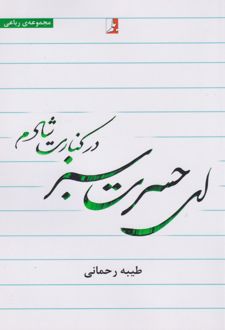 مجموعه‌ی رباعی
در کنارت شادم
ای حسرت سبز
طیبه رحمانی